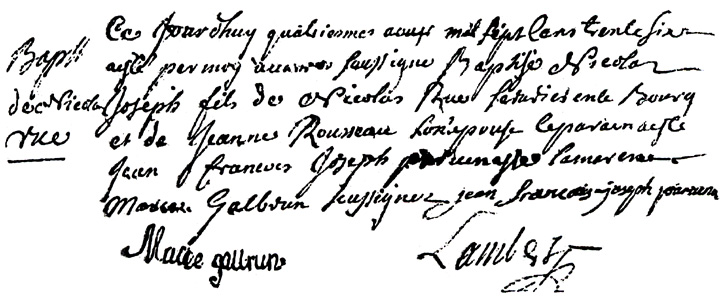 Bapt
de Nicolas
rue
Ce Jourdhuy quatriesmes aoust mil sept cens trente six
a esté par moy soussigne Baptise Nicolas
Joseph fils de Nicolas Rue Bourg
et de Jeanne Rousseau son epouse le parain a esté
Jean francois Joseph la mareine
Galbrun soussignez jean francois joseph
Marie galbrun
Lambert